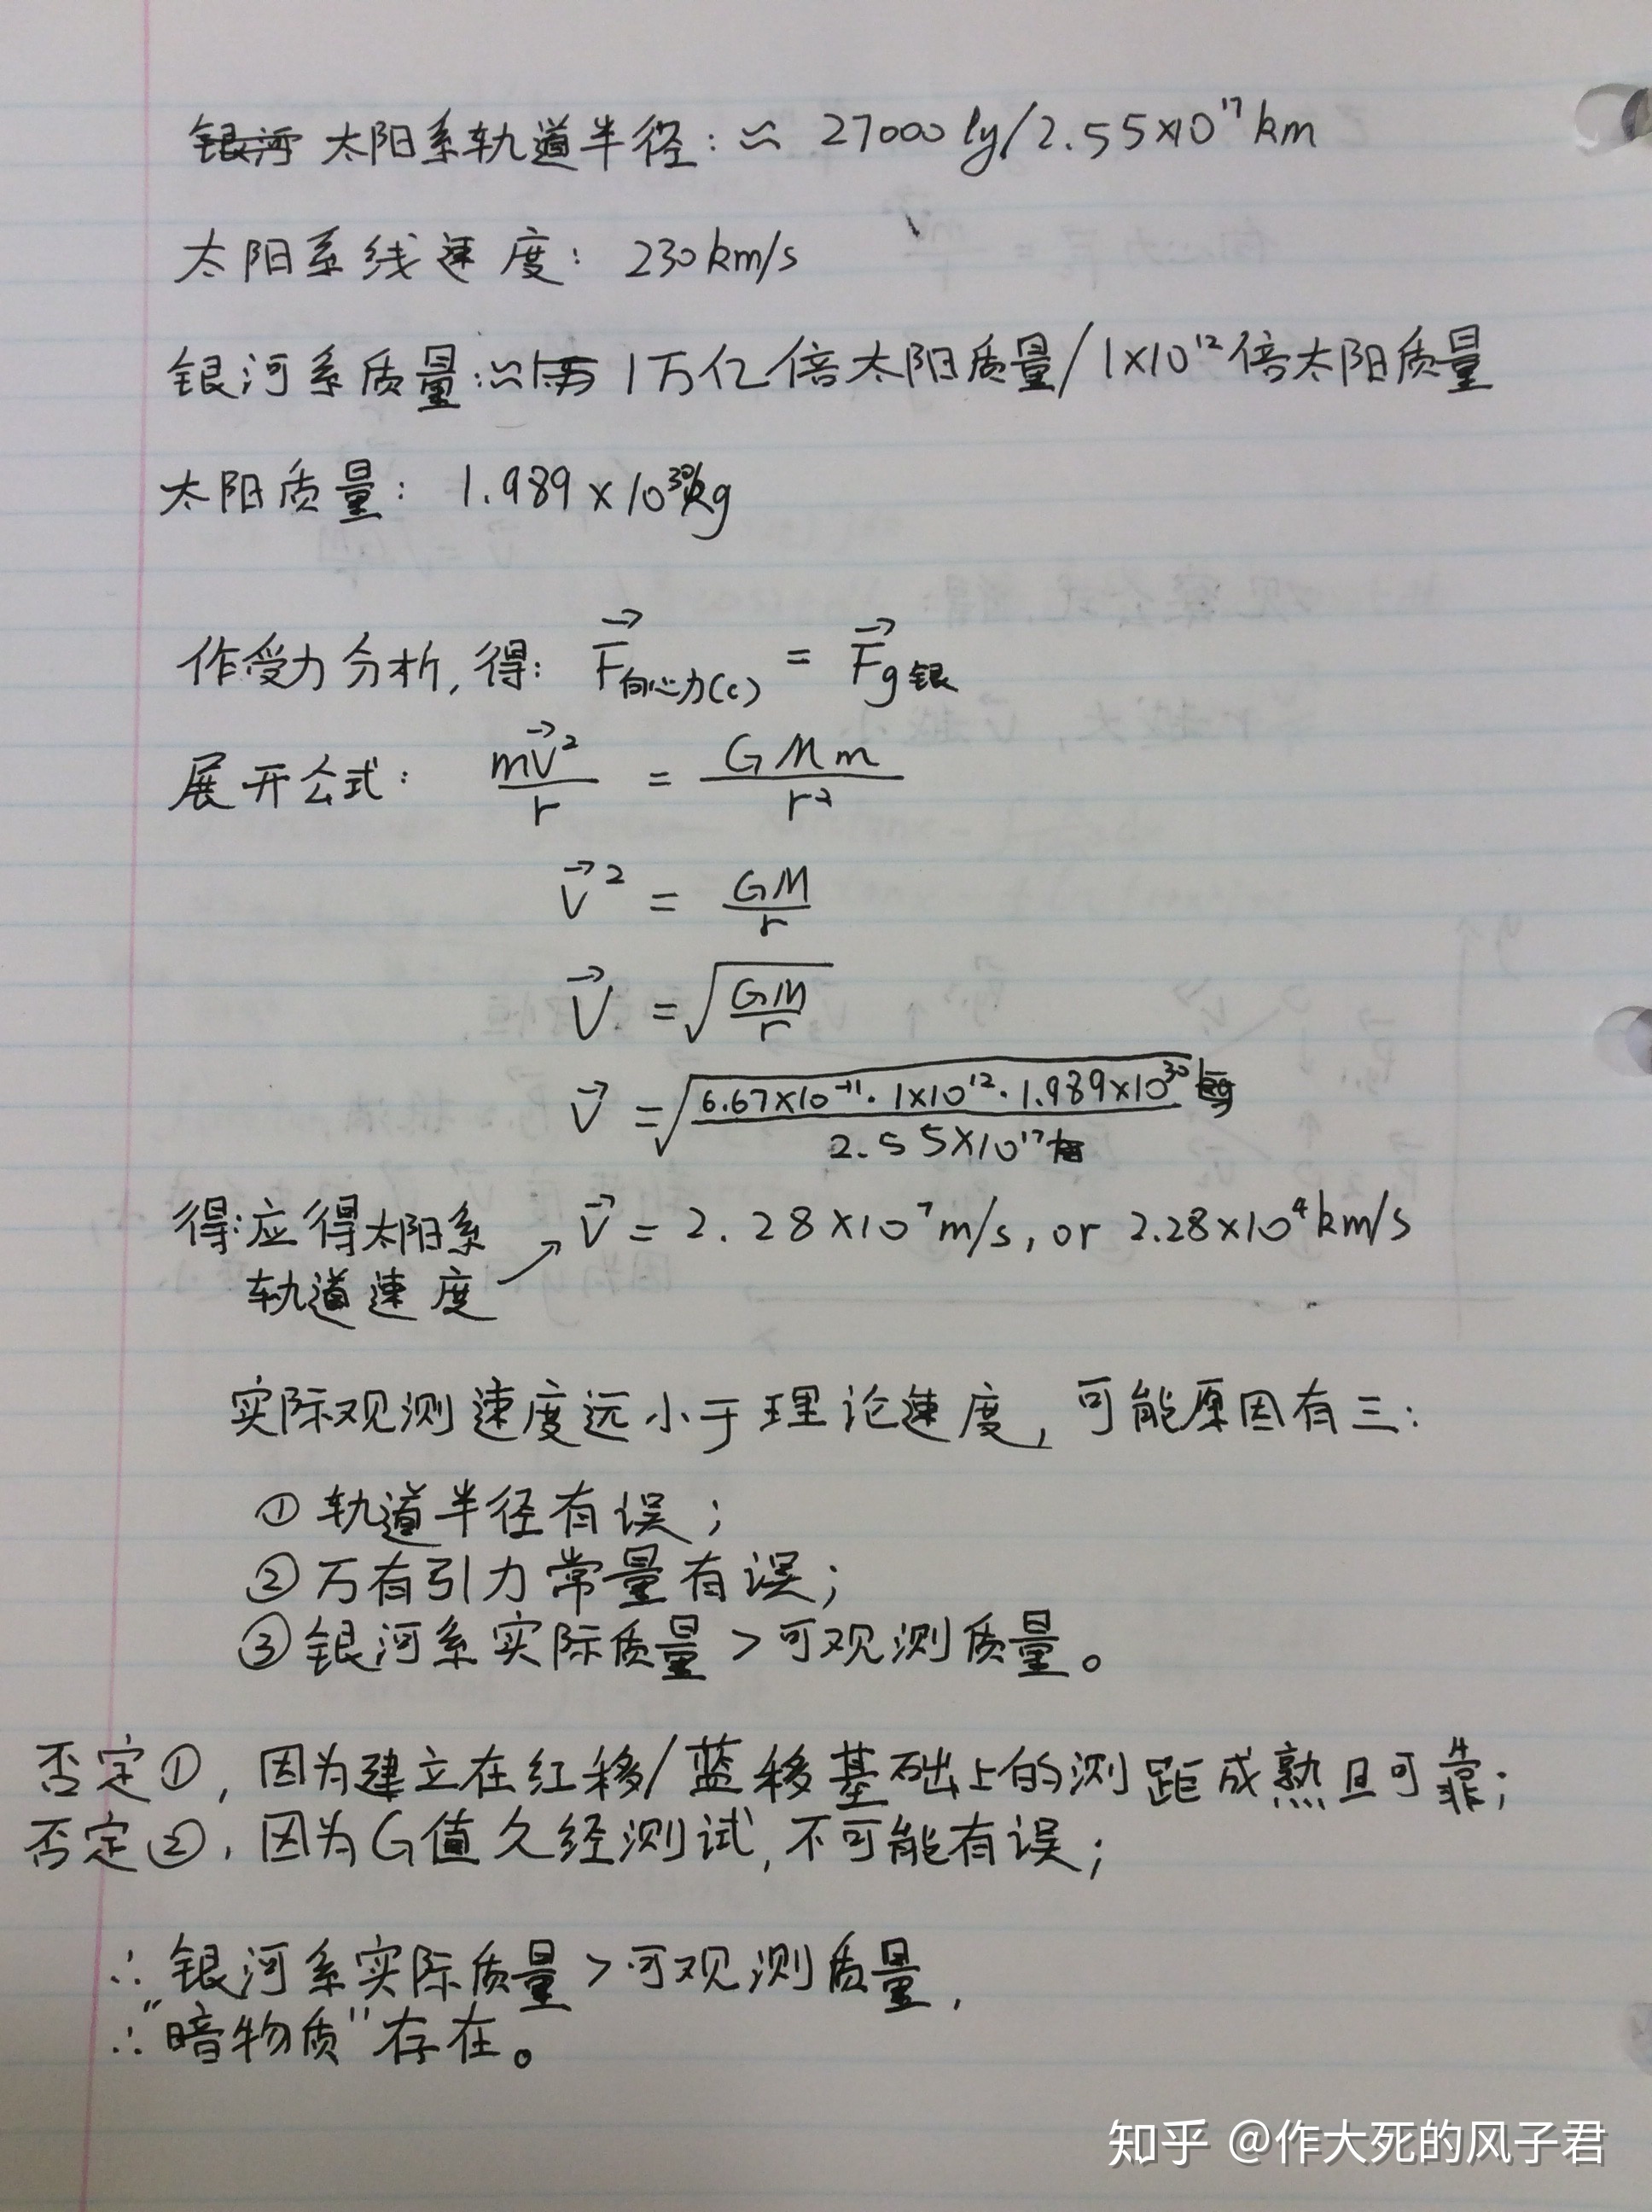 太阳系轨道半径：≈ 27000 ly/2.55×10¹⁷km
太阳系线速度：230km/s
银河系质量：≈ 1万亿倍太阳质量/1×10¹²倍太阳质量
太阳质量：1.989×10³⁰kg
作受力分析，得：F⃗向心力(c) = F⃗g银
展开公式：mv⃗²/r = GMm/r²
v⃗² = GM/r
v⃗ = √(GM/r)
v⃗ = √(6.67×10⁻¹¹·1×10¹²·1.989×10³⁰/2.55×10¹⁷)
得:应得太阳系轨道速度 → v⃗ = 2.28×10⁷m/s, or 2.28×10⁴km/s
实际观测速度远小于理论速度，可能原因有三：
①轨道半径有误；
②万有引力常量有误；
③银河系实际质量>可观测质量。
否定①，因为建立在红移/蓝移基础上的测距成熟且可靠；
否定②，因为G值久经测试，不可能有误；
∴银河系实际质量>可观测质量，
∴“暗物质”存在。
知乎 @作大死的风子君